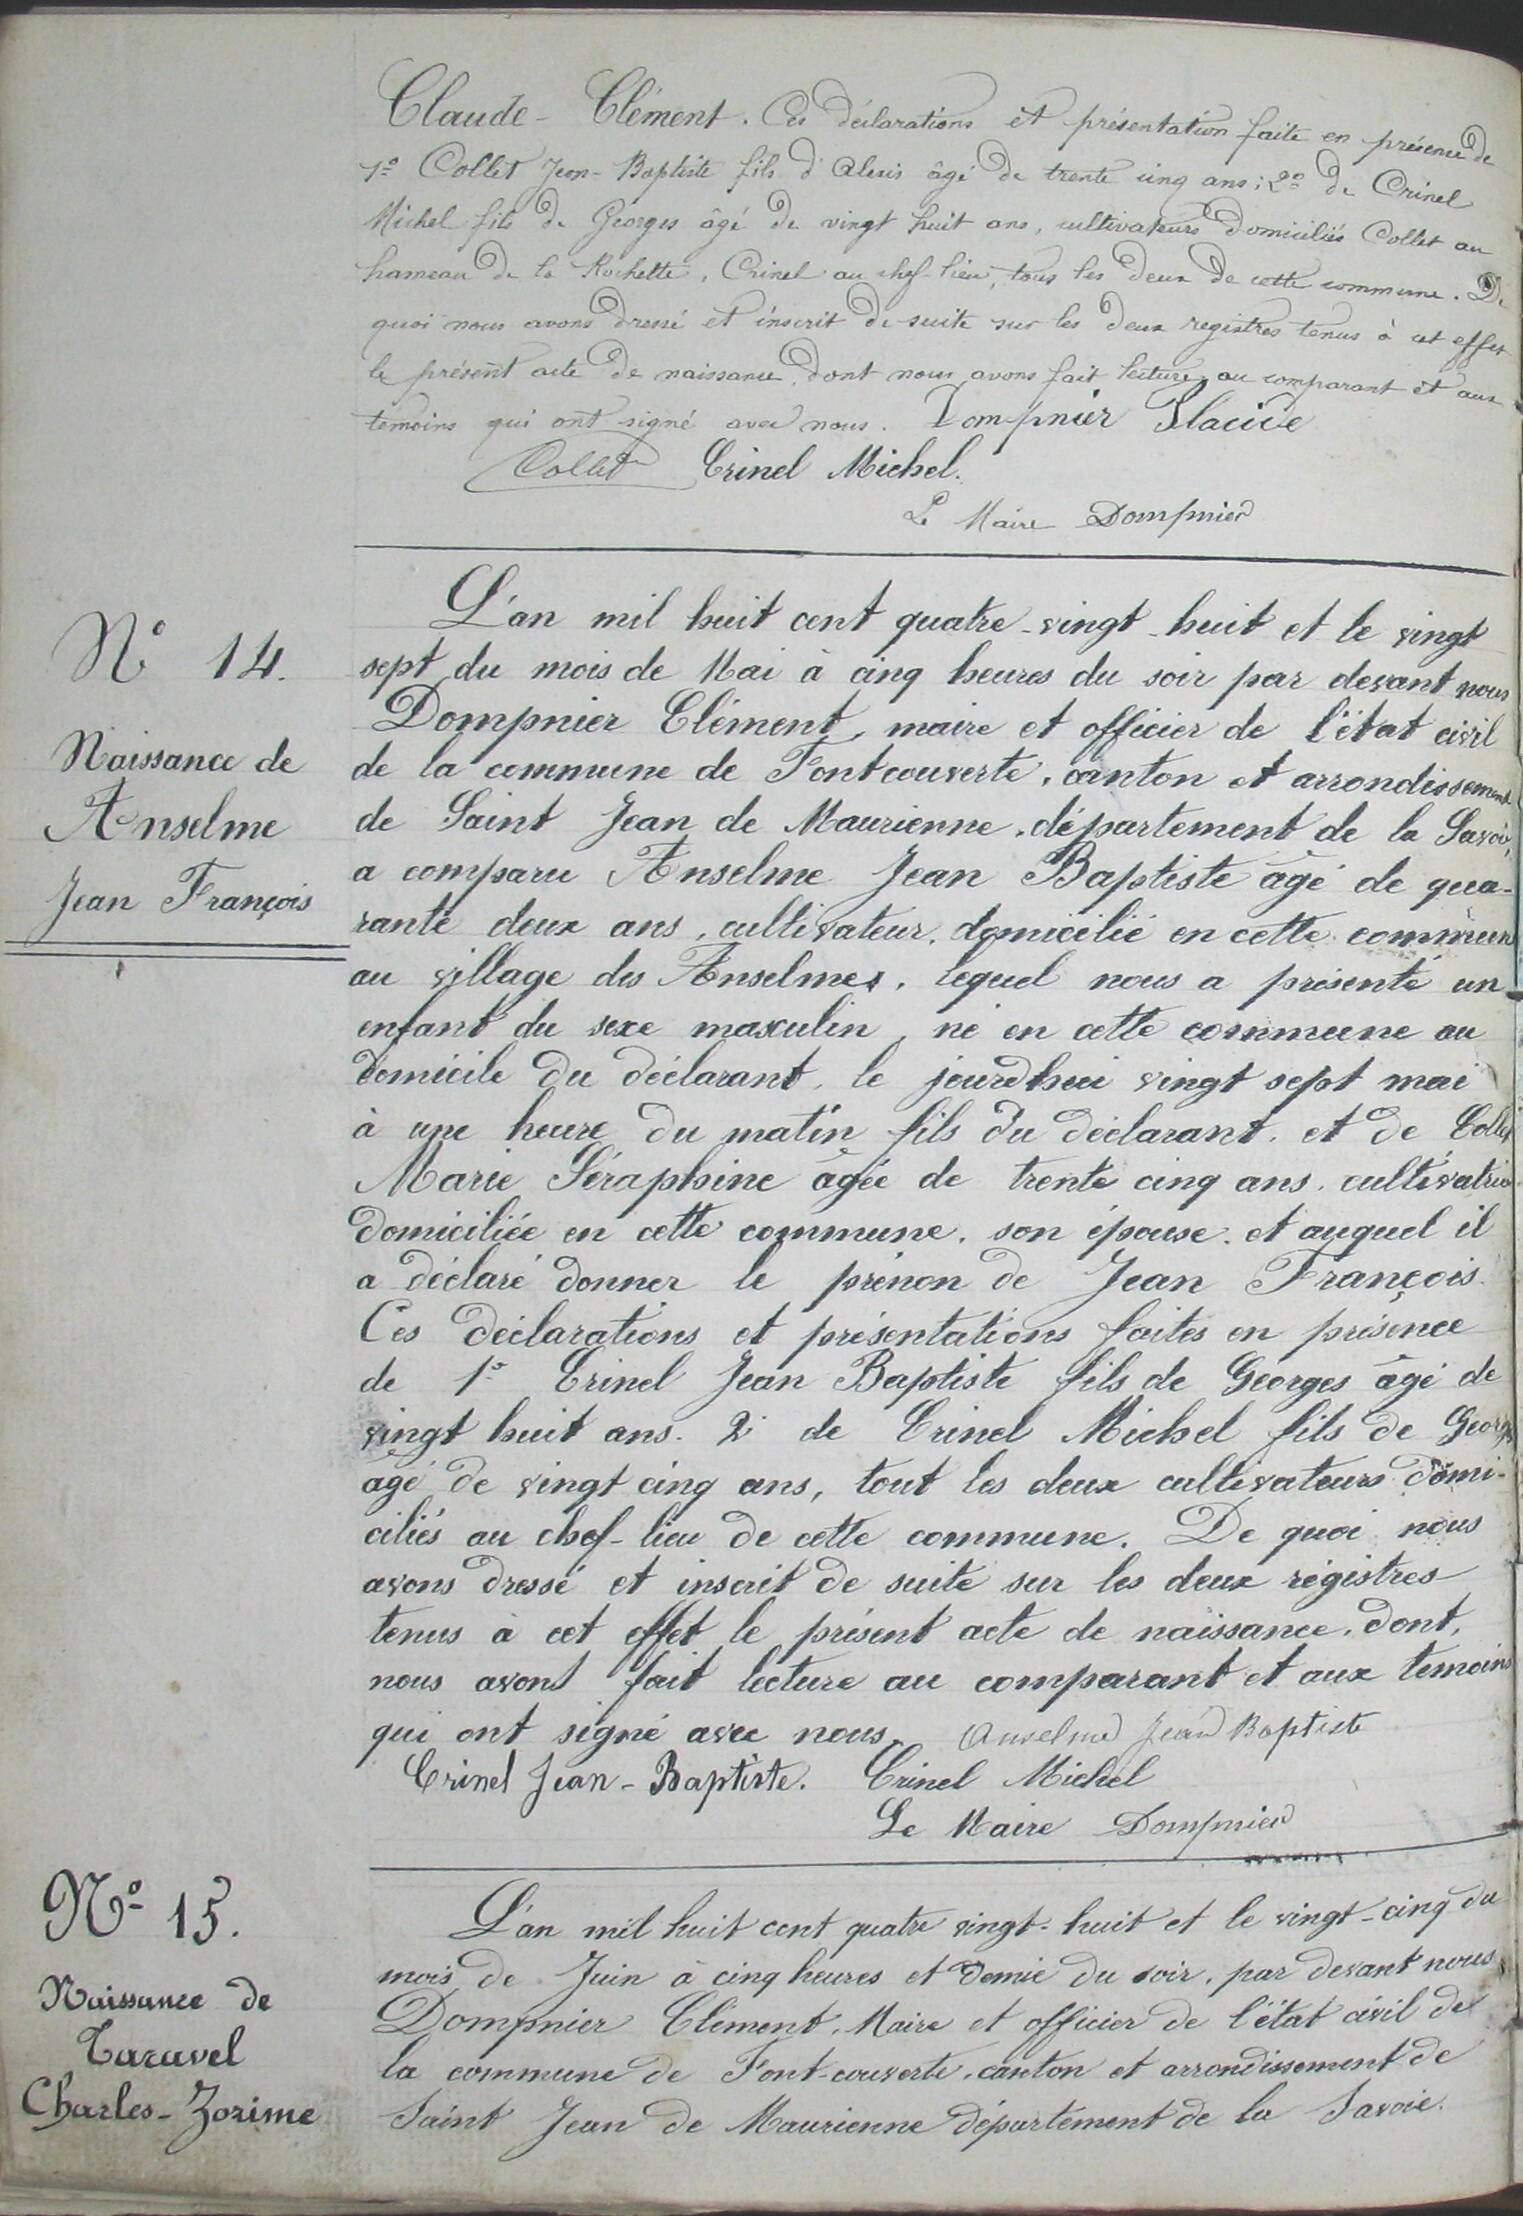 Claude - Clément. Ces déclarations et présentation faite en présence de
1º Collet Jean-Baptiste fils d'Alexis âgé de trente cinq ans ; 2º de Crinel
Michel fils de Georges âgé de vingt huit ans, cultivateurs domiciliés Collet au
hameau de la Rochette, Crinel au chef-lieu, tous les deux de cette commune. De
quoi nous avons dressé et inscrit de suite sur les deux registres tenus à cet effet
le présent acte de naissance, dont nous avons fait lecture au comparant et aux
témoins qui ont signé avec nous. Dompnier Placide
Collet Crinel Michel.
Le Maire Dompnier
Nº 14.
Naissance de
Anselme
Jean François
L'an mil huit cent quatre-vingt-huit et le vingt
sept du mois de Mai à cinq heures du soir par devant nous
Dompnier Clément, maire et officier de l'état civil
de la commune de Fontcouverte, canton et arrondissement
de Saint Jean de Maurienne, département de la Savoie,
a comparu Anselme Jean Baptiste âgé de qua-
rante deux ans, cultivateur, domicilié en cette commune
au village des Anselmes, lequel nous a présenté un
enfant du sexe masculin, né en cette commune au
domicile du déclarant, le jourd'hui vingt sept mai
à une heure du matin fils du déclarant, et de Collet
Marie Séraphine âgée de trente cinq ans, cultivatrice
domiciliée en cette commune, son épouse, et auquel il
a déclaré donner le prénon de Jean François.
Ces déclarations et présentations faites en présence
de 1º Crinel Jean Baptiste fils de Georges âgé de
vingt huit ans. 2º de Crinel Michel fils de Georges
âgé de vingt cinq ans, tout les deux cultivateurs domi-
ciliés au chef-lieu de cette commune. De quoi nous
avons dressé et inscrit de suite sur les deux régistres
tenus à cet effet le présent acte de naissance, dont,
nous avons fait lecture au comparant et aux témoins
qui ont signé avec nous. Anselme Jean Baptiste
Crinel Jean-Baptiste. Crinel Michel
Le Maire Dompnier
Nº 15.
Naissance de
Taravel
Charles-Zozime
L'an mil huit cent quatre vingt-huit et le vingt-cinq du
mois de Juin à cinq heures et demie du soir, par devant nous
Dompnier Clément, Maire et officier de l'état civil de
la commune de Font-couverte, canton et arrondissement de
Saint Jean de Maurienne département de la Savoie.